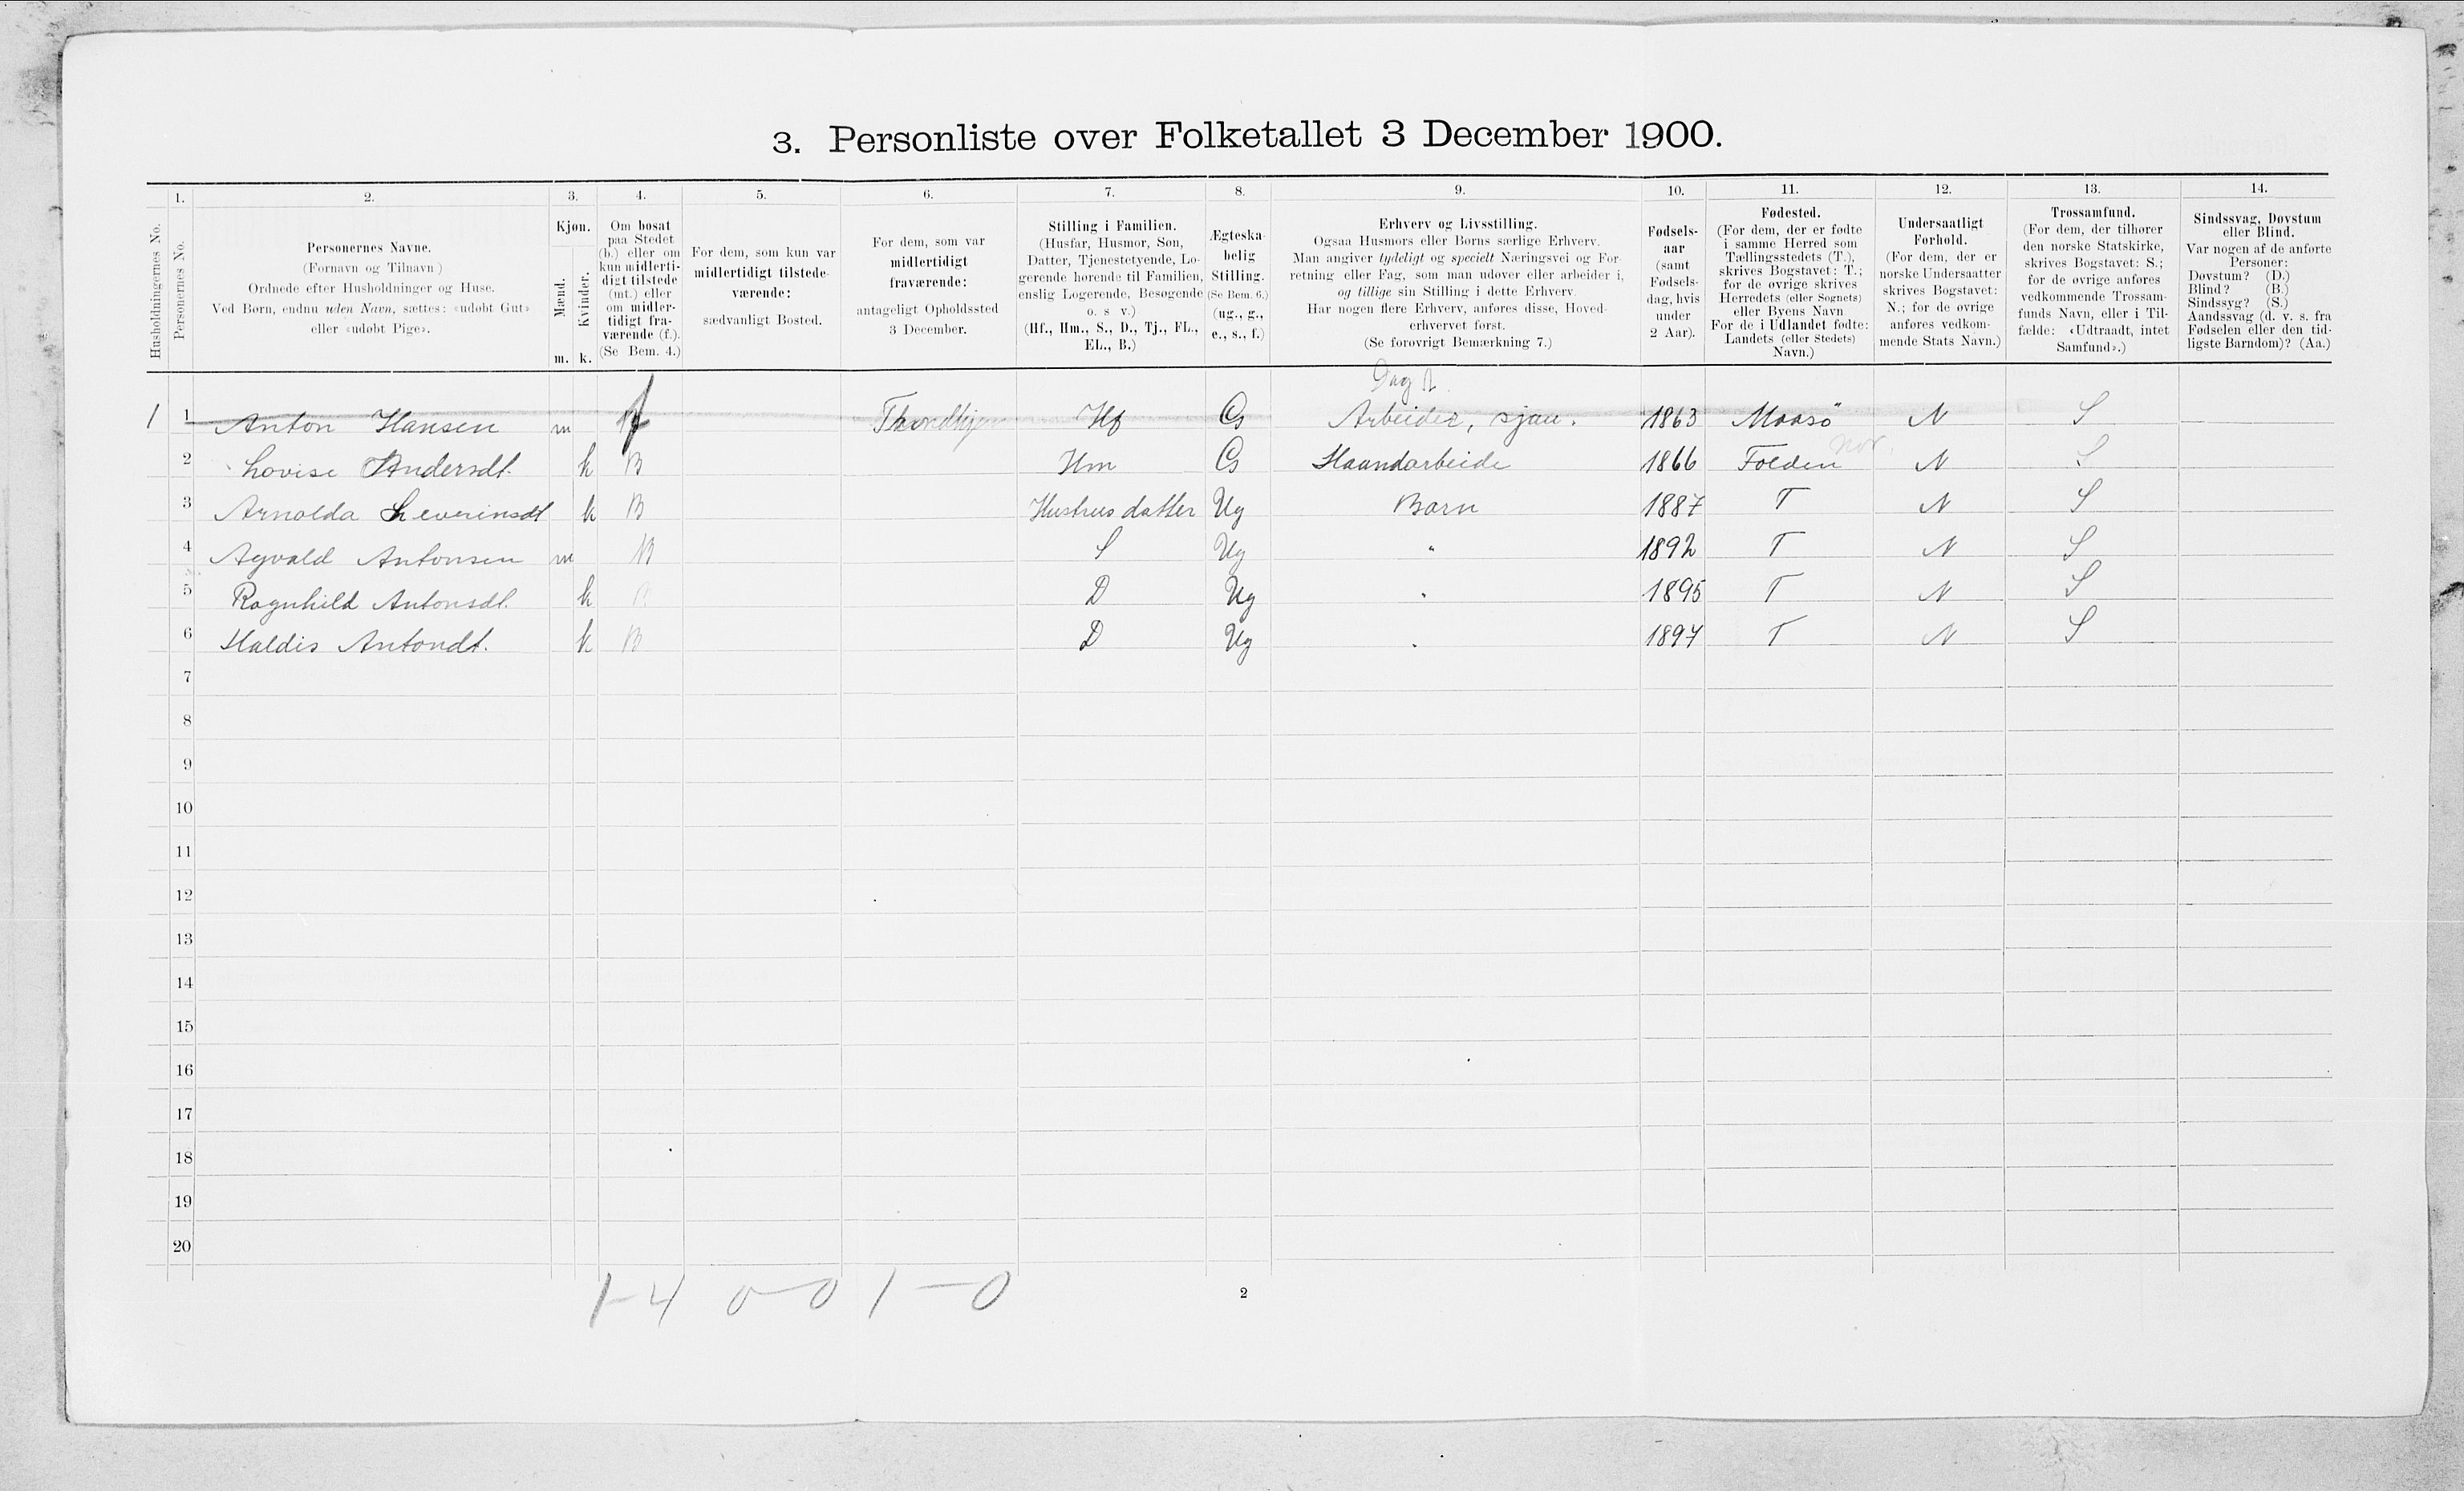 3. Personliste over Folketallet 3 December 1900.
1. 2. 3. 4. 5. 6. 7. 8. 9. 10. 11. 12. 13. 14.
Husholdningernes No.
Personernes No.
Personernes Navne.
(Fornavn og Tilnavn)
Ordnede efter Husholdninger og Huse.
Ved Børn, endnu uden Navn, sættes: «udøbt Gut»
eller «udøbt Pige».
Kjøn.
Mænd.
Kvinder.
m. k.
Om bosat
paa Stedet
(b.) eller om
kun midlerti-
digt tilstede
(mt.) eller
om midler-
tidigt fra-
værende (f.).
(Se Bem. 4.)
For dem, som kun var
midlertidigt tilstede-
værende:
sædvanligt Bosted.
For dem, som var
midlertidigt
fraværende:
antageligt Opholdssted
3 December.
Stilling i Familien.
(Husfar, Husmor, Søn,
Datter, Tjenestetyende, Lo-
gerende hørende til Familien,
enslig Logerende, Besøgende
o. s. v.)
(Hf., Hm., S., D., Tj., FL.,
EL., B.)
Ægteska-
belig
Stilling.
(Se Bem. 6.)
(ug., g.,
e., s., f.)
Erhverv og Livsstilling.
Ogsaa Husmors eller Børns særlige Erhverv.
Man angiver tydeligt og specielt Næringsvei og For-
retning eller Fag, som man udøver eller arbeider i,
og tillige sin Stilling i dette Erhverv.
Har nogen flere Erhverv, anføres disse, Hoved-
erhvervet først.
(Se forøvrigt Bemærkning 7.)
Fødsels-
aar
(samt
Fødsels-
dag, hvis
under
2 Aar).
Fødested.
(For dem, der er fødte
i samme Herred som
Tællingsstedets (T.),
skrives Bogstavet: T.;
for de øvrige skrives
Herredets (eller Sognets)
eller Byens Navn
For de i Udlandet fødte:
Landets (eller Stedets)
Navn.)
Undersaatligt
Forhold.
(For dem, der er
norske Undersaatter
skrives Bogstavet:
N.; for de øvrige
anføres vedkom-
mende Stats Navn.)
Trossamfund.
(For dem, der tilhører
den norske Statskirke,
skrives Bogstavet: S.;
for de øvrige anføres
vedkommende Trossam-
funds Navn, eller i Til-
fælde: «Udtraadt, intet
Samfund».)
Sindssvag, Døvstum
eller Blind.
Var nogen af de anførte
Personer:
Døvstum? (D.)
Blind? (B.)
Sindssyg? (S.)
Aandssvag (d. v. s. fra
Fødselen eller den tid-
ligste Barndom)? (Aa.)
Dag
1 1 Anton Hansen m f Hf G Arbeider, sjau. 1863 Maasö N S
2 Lovise Andersdt. k B Hm G Haandarbeide 1866 Folden N S
3 Arnolda Severinsdt k B Hustrus datter Ug Barn 1887 T N S
4 Agvald Antonsen m B S Ug " 1892 T N S
5 Ragnhild Antonsdt. k B D Ug " 1895 T N S
6 Haldis Antondt. k B D Ug " 1897 T N S
7
8
9
10
11
12
13
14
15
16
17
18
19
20
1-4 0-0 1-0
2